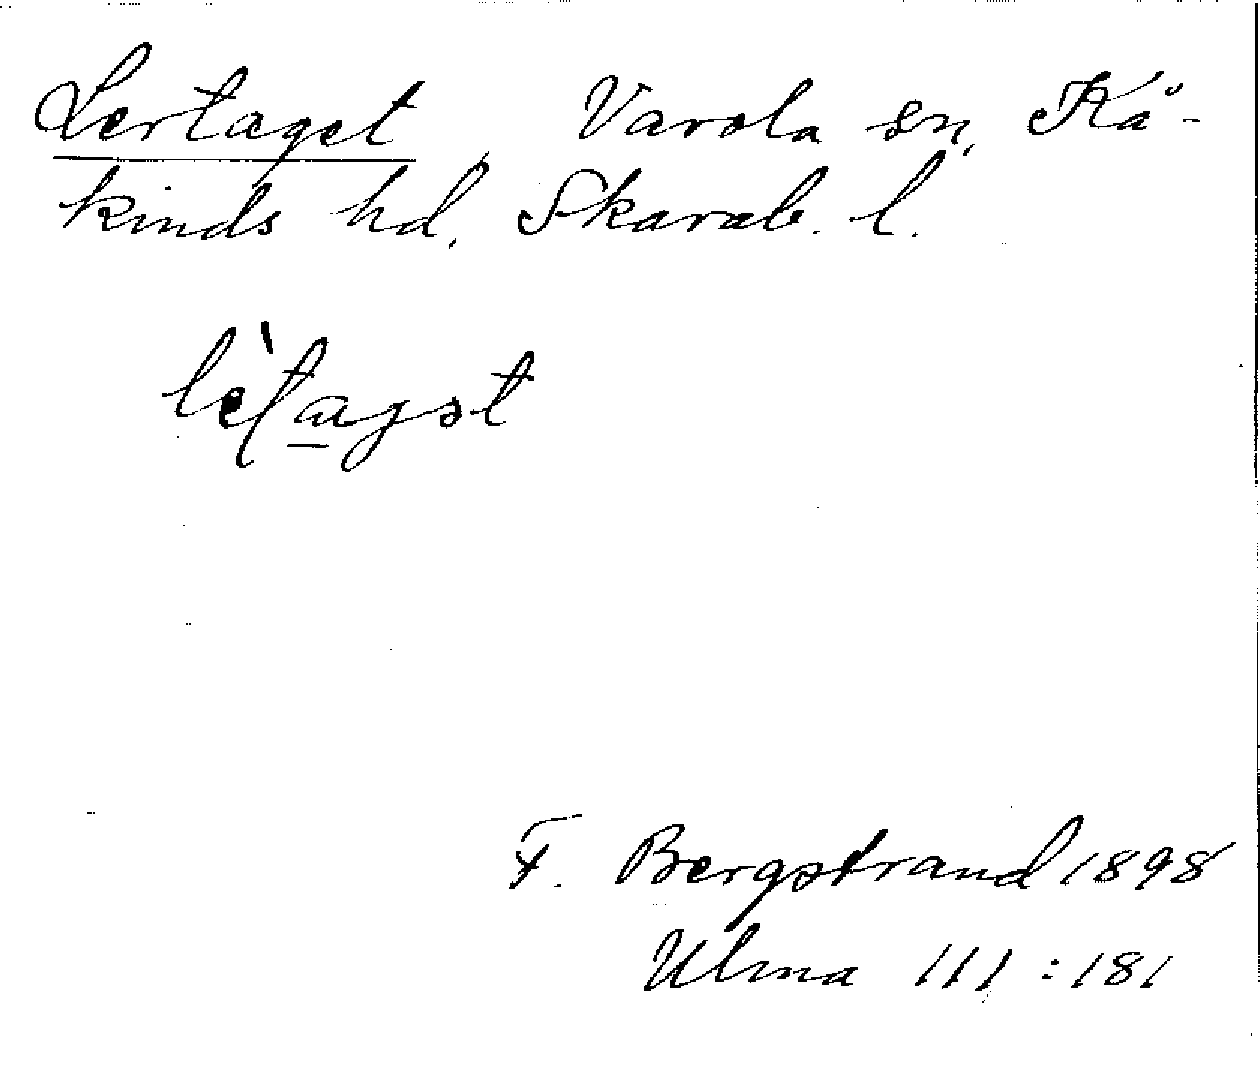 Lertaget, Varola sn, Kå-
kinds hd, Skarab. l.
lèt̩agət
F. Bergstrand 1898
Ulma 111:181